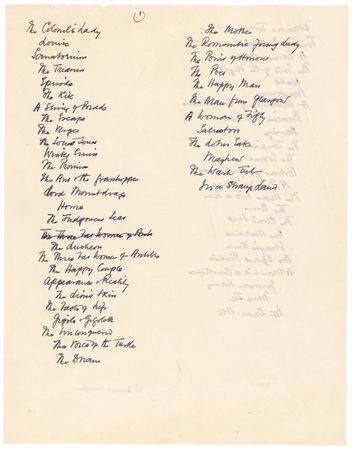 1
The Colonel's Lady
Louise
Sanatorium
The Treasure
Episode
The Kite
A String of Beads
The Escape
The Verger
The Social Sense
Winter Cruise
The Promise
The Ant & the Grasshopper
Lord Mountdrago
Home
The Judgement Seat
The Three Fat Women of
The Luncheon
The Three Fat Women of Antibes
The Happy Couple
Appearance & Reality
The Lion's Skin
The Facts of Life
Gigolo & Gigolette
The Unconquered
The Voice of the Turtle
The Dream
The Mother
The Romantic Young Lady
The Point of Honour
The Poet
The Happy Man
The Man from Glasgow
A Woman of Fifty
Salvatore
The Lotus Eater
Mayhew
The Wash Tub
In a Strange Land